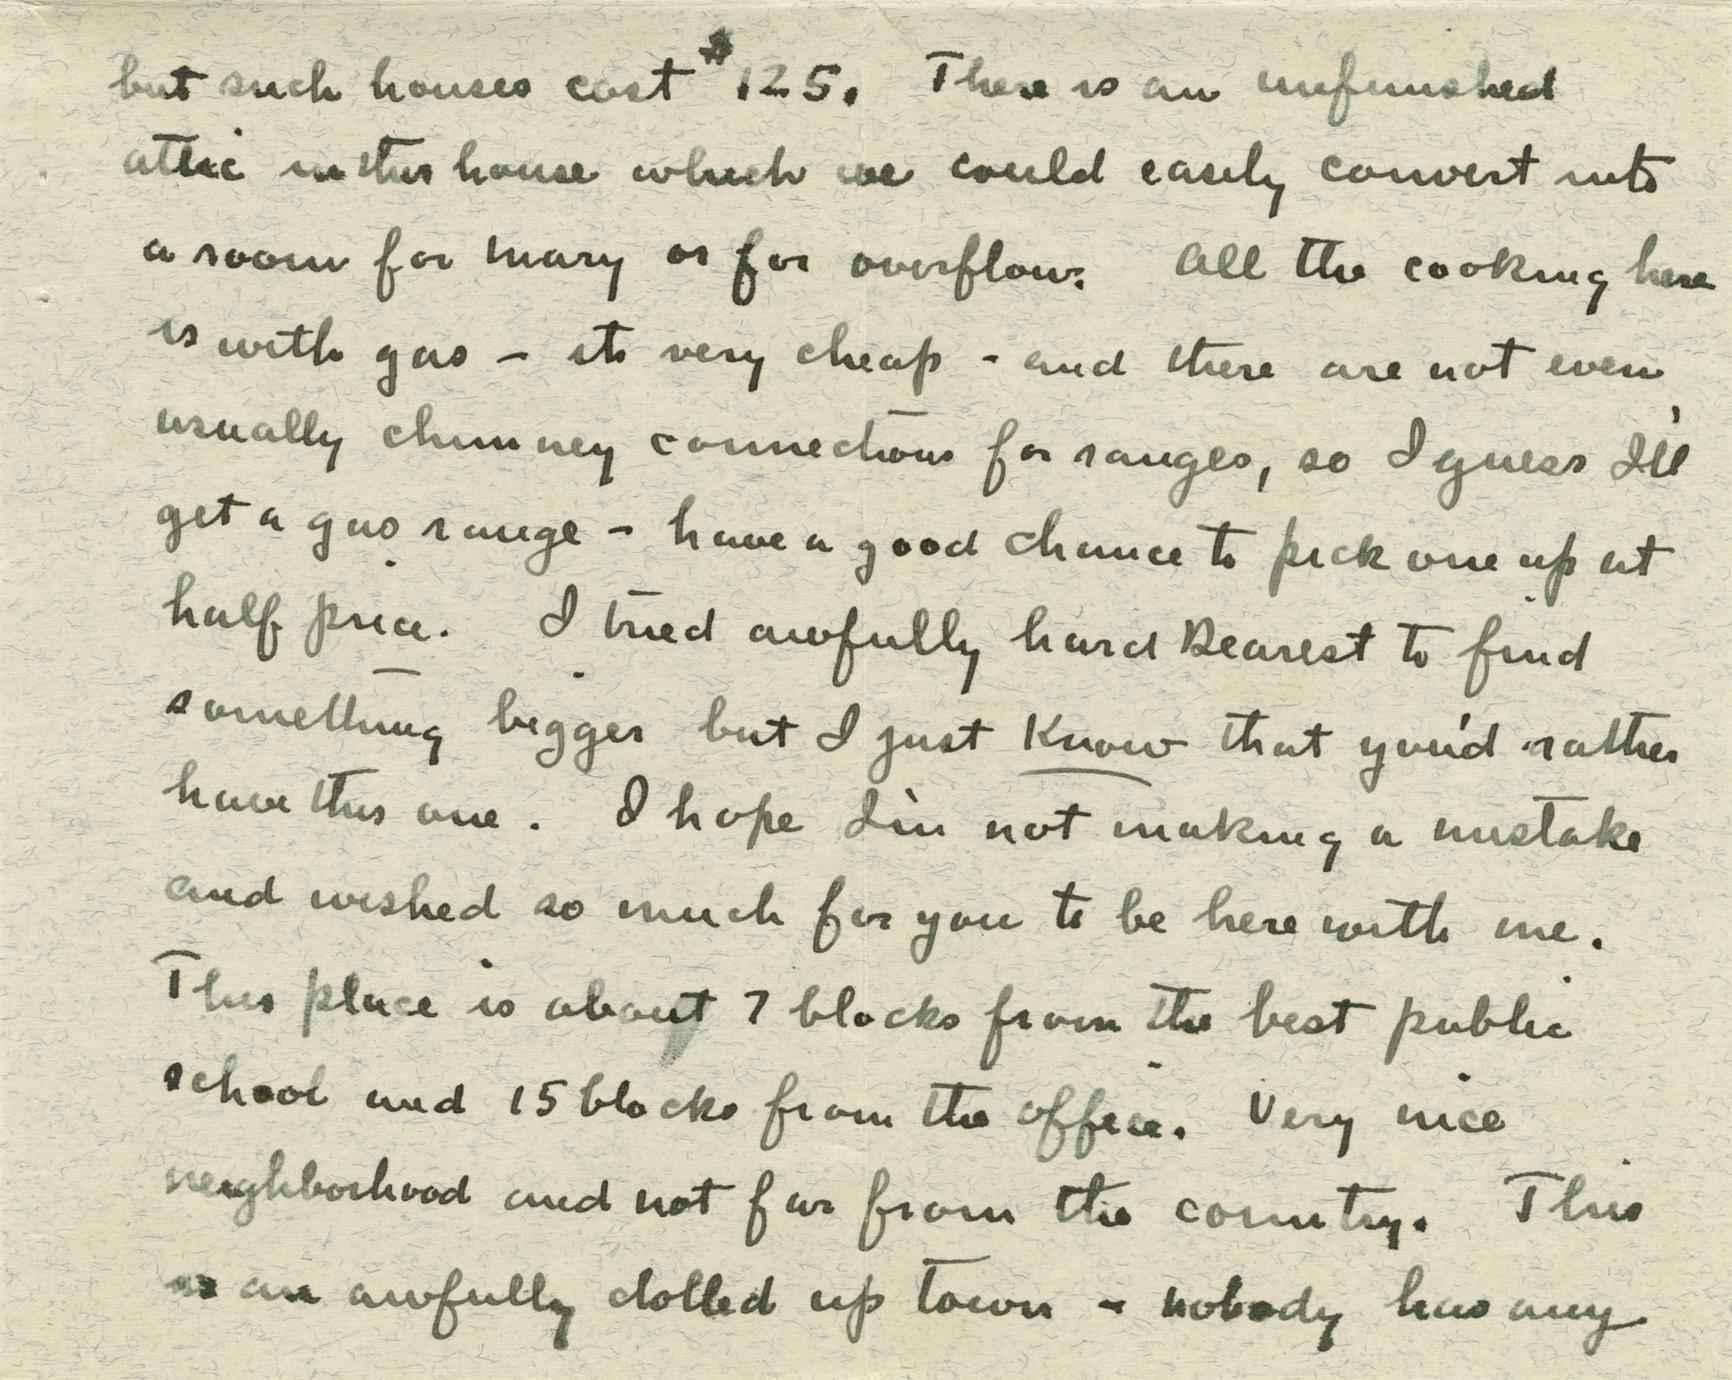 but such houses cost $125. There is an unfinished
attic in this house which we could easily convert into
a room for Mary or for overflow. All the cooking here
is with gas - its very cheap - and there are not even
usually chimney connections for ranges, so I guess I'll
get a gas range - have a good chance to pick one up at
half price. I tried awfully hard Dearest to find
something bigger but I just know that you'd rather
have this one. I hope I'm not making a mistake
and wished so much for you to be here with me.
This place is about 7 blocks from the best public
school and 15 blocks from the office. Very nice
neighborhood and not far from the country. This
is an awfully dolled up town - nobody has any